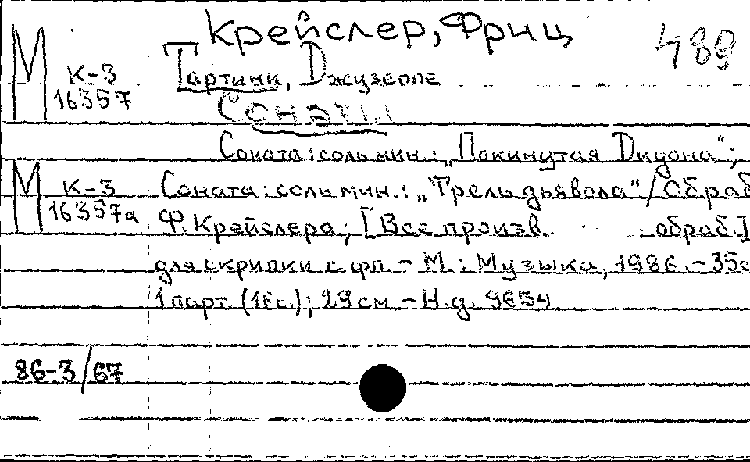 Крейслер, Фриц
489
М К-3 16357
Тартини, Джузеппе
Сонаты
Соната: соль мин.: „Покинутая Дидона";
М К-3 16357а
Соната: соль мин.: „Трель дьявола" / Обраб
Ф. Крейслера; [Все произв. обраб.]
для скрипки с фп. - М.: Музыка, 1986. - 35с
1 парт. (16с.); 29 см - Н.д. 9654
86-3/67